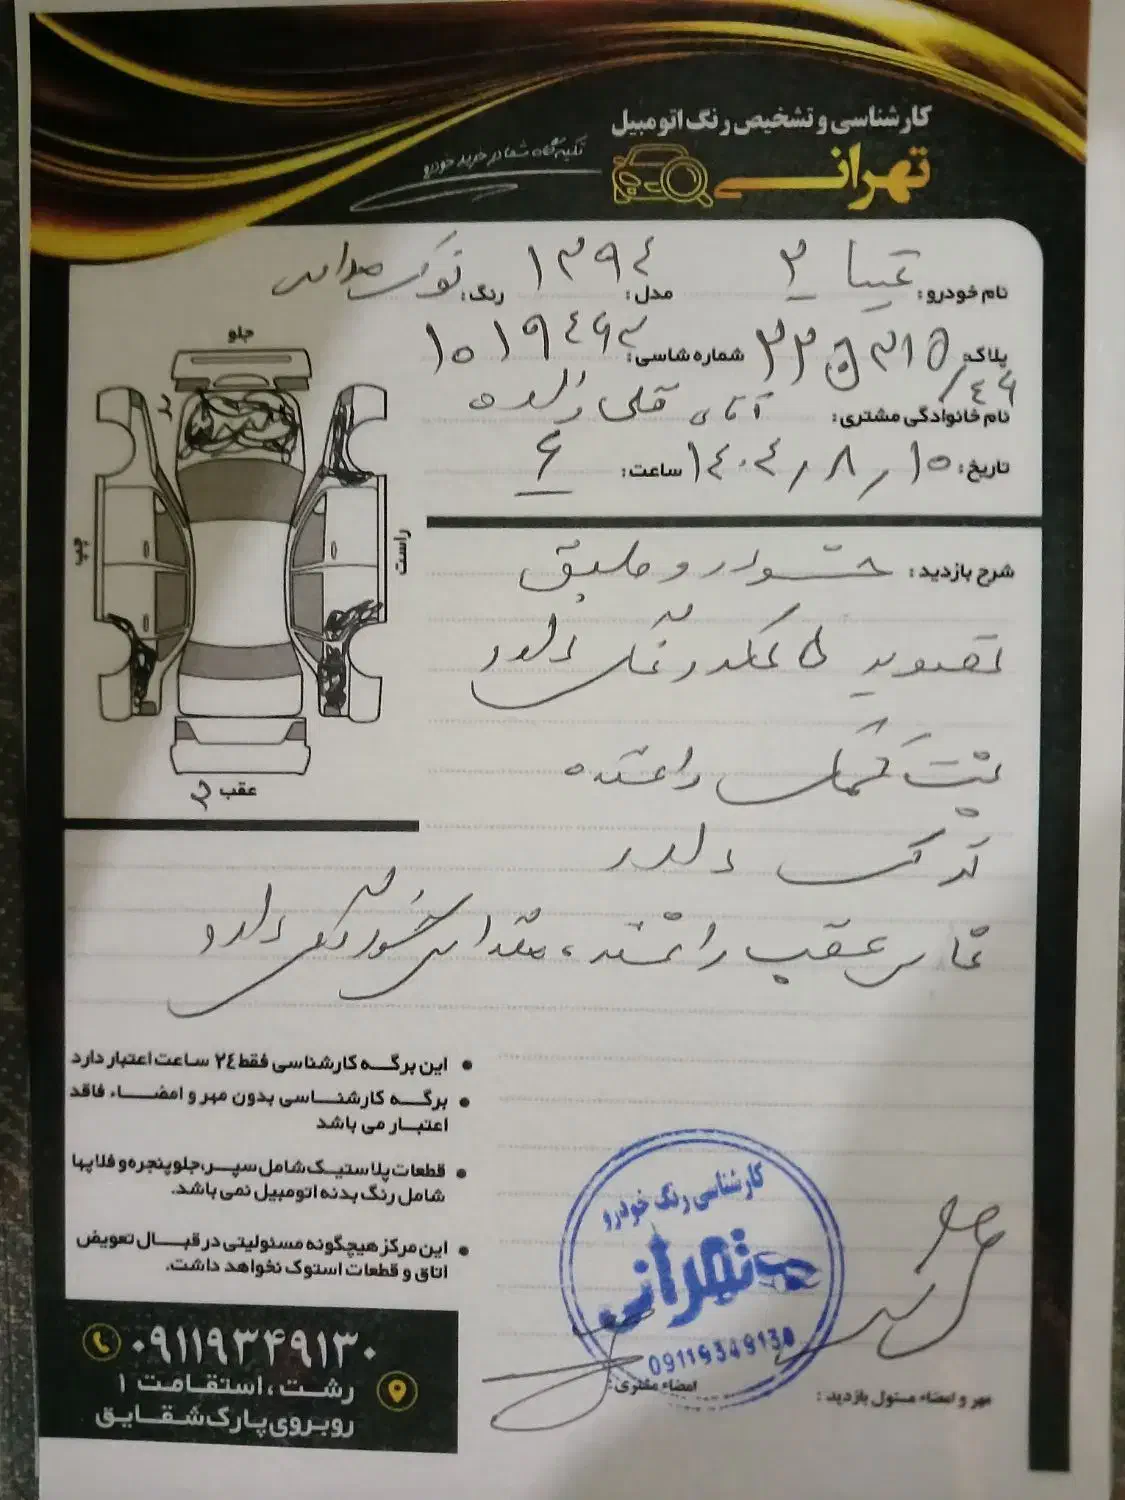 کارشناسی و تشخیص رنگ اتومبیل
تهرانی
تکیه گاه شما در خرید خودرو
نام خودرو: تیبا ۲ مدل: ۱۳۹٤ رنگ: نوک مدادی
پلاک: شماره شاسی:
نام خانوادگی مشتری: آقای قلی زاده
تاریخ: ۱۴۰٤/۸/۱۵ ساعت: ۶
جلو
راست
چپ
عقب
شرح بازدید: خودرو مطابق
تصویر رنگ دارد
راننده
ترک دارد
عقب راننده، مقداری خوردگی دارد
این برگه کارشناسی فقط ۲٤ ساعت اعتبار دارد
برگه کارشناسی بدون مهر و امضاء فاقد
اعتبار می باشد
قطعات پلاستیک شامل سپر، جلوپنجره و فلاپها
شامل رنگ بدنه اتومبیل نمی باشد.
این مرکز هیچگونه مسئولیتی در قبال تعویض
اتاق و قطعات استوک نخواهد داشت.
کارشناسی رنگ خودرو
تهرانی
09119349130
مهر و امضاء مسئول بازدید:
امضاء مشتری:
۰۹۱۱۹۳۴۹۱۳۰
رشت، استقامت ۱
روبروی پارک شقایق